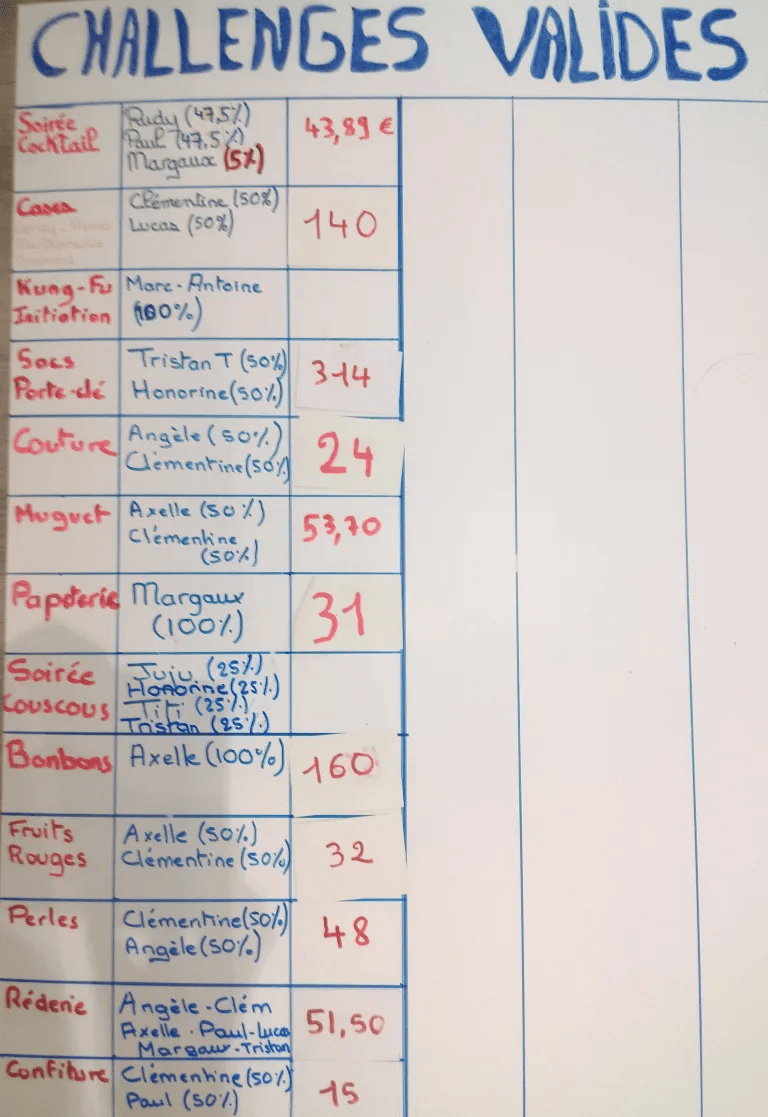 CHALLENGES VALIDES
Soirée
Cocktail
Rudy (47,5%)
Paul (47,5%)
Margaux (5%)
43,89 €
Cases
Clémentine (50%)
Lucas (50%)
140
Kung-Fu
Initiation
Marc-Antoine
(100%)
Sacs
Porte-clé
Tristan T (50%)
Honorine (50%)
314
Couture
Angèle (50%)
Clémentine (50%)
24
Muguet
Axelle (50%)
Clémentine
(50%)
53,70
Margaux
(100%)
31
Soirée
Couscous
Juju (25%)
Honorine (25%)
Titi (25%)
Tristan (25%)
Bonbons
Axelle (100%)
160
Fruits
Rouges
Axelle (50%)
Clémentine (50%)
32
Perles
Clémentine (50%)
Angèle (50%)
48
Réderie
Angèle - Clém
Axelle - Paul - Lucas
Margaux - Tristan
51,50
Confiture
Clémentine (50%)
Paul (50%)
15